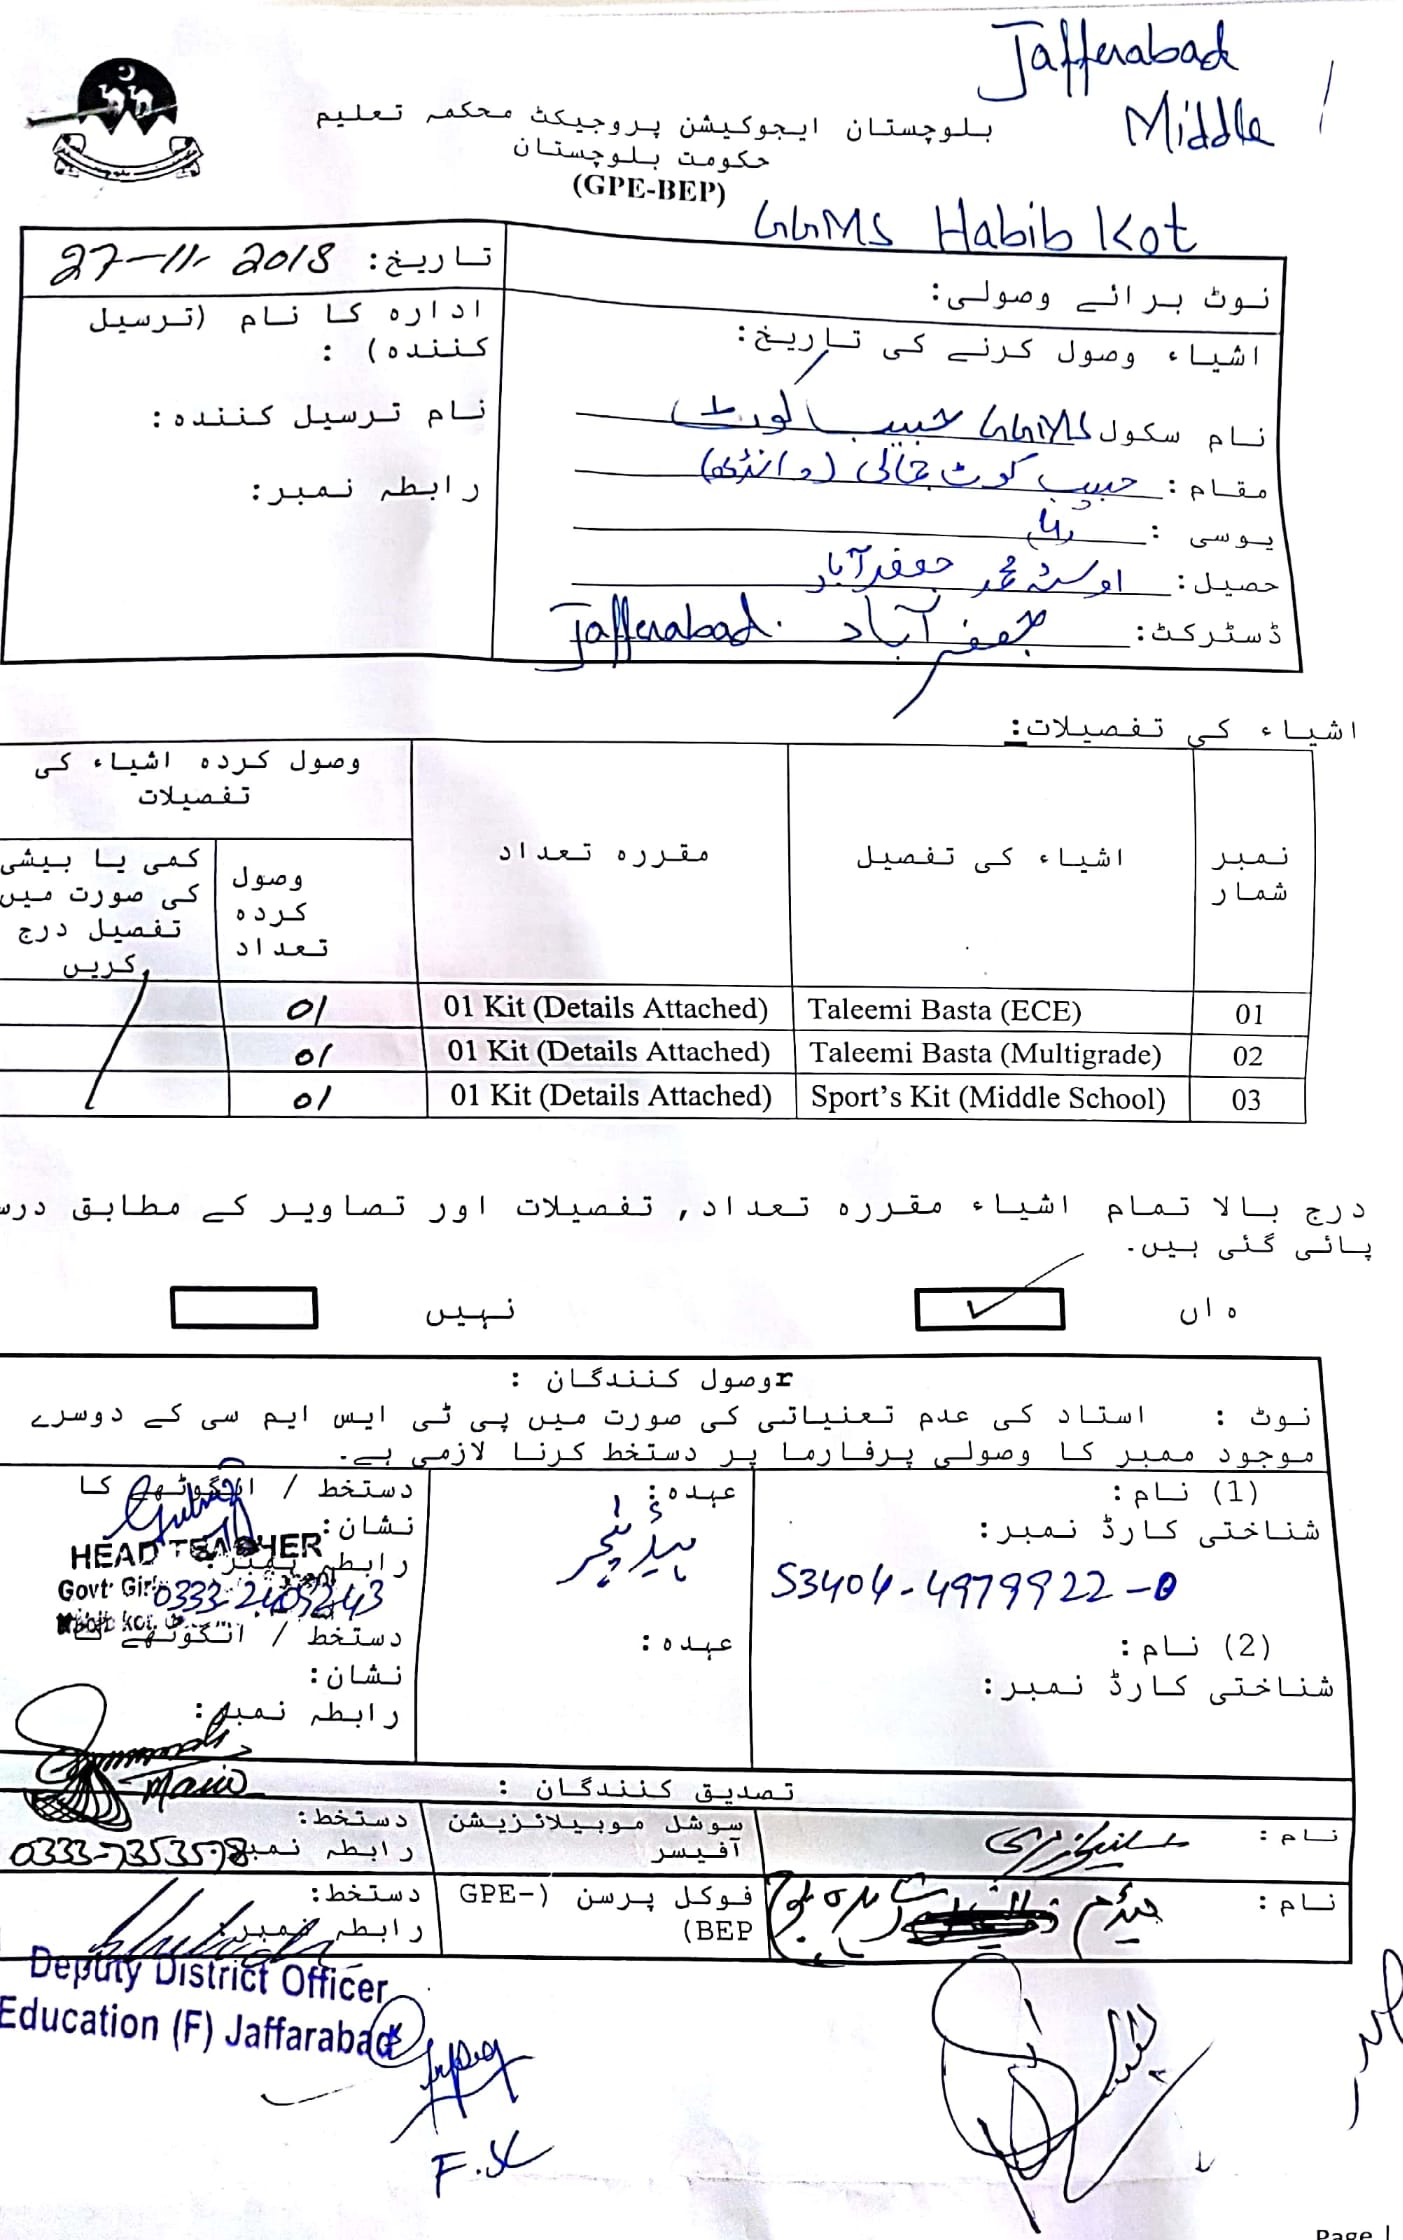 Jafferabad
Middle
بلوچستان ایجوکیشن پروجیکٹ محکمہ تعلیم
حکومت بلوچستان
(GPE-BEP)
GGMS Habib Kot
نوٹ برائے وصولی:
تاریخ: 27-11-2018
اشیاء وصول کرنے کی تاریخ:
ادارہ کا نام (ترسیل کنندہ) :
نام سکول GGMS حبیب کوٹ
نام ترسیل کنندہ:
مقام: حبیب کوٹ جمالی
رابطہ نمبر:
یوسی :
حصیل: اوستہ محمد جعفرآباد
ڈسٹرکٹ: جعفرآباد Jafferabad.
اشیاء کی تفصیلات:
نمبر شمار
اشیاء کی تفصیل
مقررہ تعداد
وصول کردہ اشیاء کی تفصیلات
وصول کردہ تعداد
کمی یا بیشی کی صورت میں تفصیل درج کریں
01 Taleemi Basta (ECE) 01 Kit (Details Attached) 01
02 Taleemi Basta (Multigrade) 01 Kit (Details Attached) 01
03 Sport's Kit (Middle School) 01 Kit (Details Attached) 01
درج بالا تمام اشیاء مقررہ تعداد, تفصیلات اور تصاویر کے مطابق درس
پائی گئی ہیں.
ہاں ✓ نہیں
rوصول کنندگان :
نوٹ : استاد کی عدم تعنیاتی کی صورت میں پی ٹی ایس ایم سی کے دوسرے
موجود ممبر کا وصولی پرفارما پر دستخط کرنا لازمی ہے.
(1) نام:
عہدہ: ہیڈ ٹیچر
دستخط / انگوٹھے کا نشان:
شناختی کارڈ نمبر:
53404-4979922-0
رابطہ نمبر:
HEAD TEACHER
Govt: Girls
0333-2409243
(2) نام:
عہدہ:
دستخط / انگوٹھے کا
نشان:
شناختی کارڈ نمبر:
رابطہ نمبر:
تصدیق کنندگان :
نام:
سوشل موبیلائزیشن آفیسر
دستخط:
رابطہ نمبر 0333-7353578
نام: میڈم
فوکل پرسن (GPE-BEP)
دستخط:
رابطہ نمبر:
Deputy District Officer
Education (F) Jaffarabad
Page |